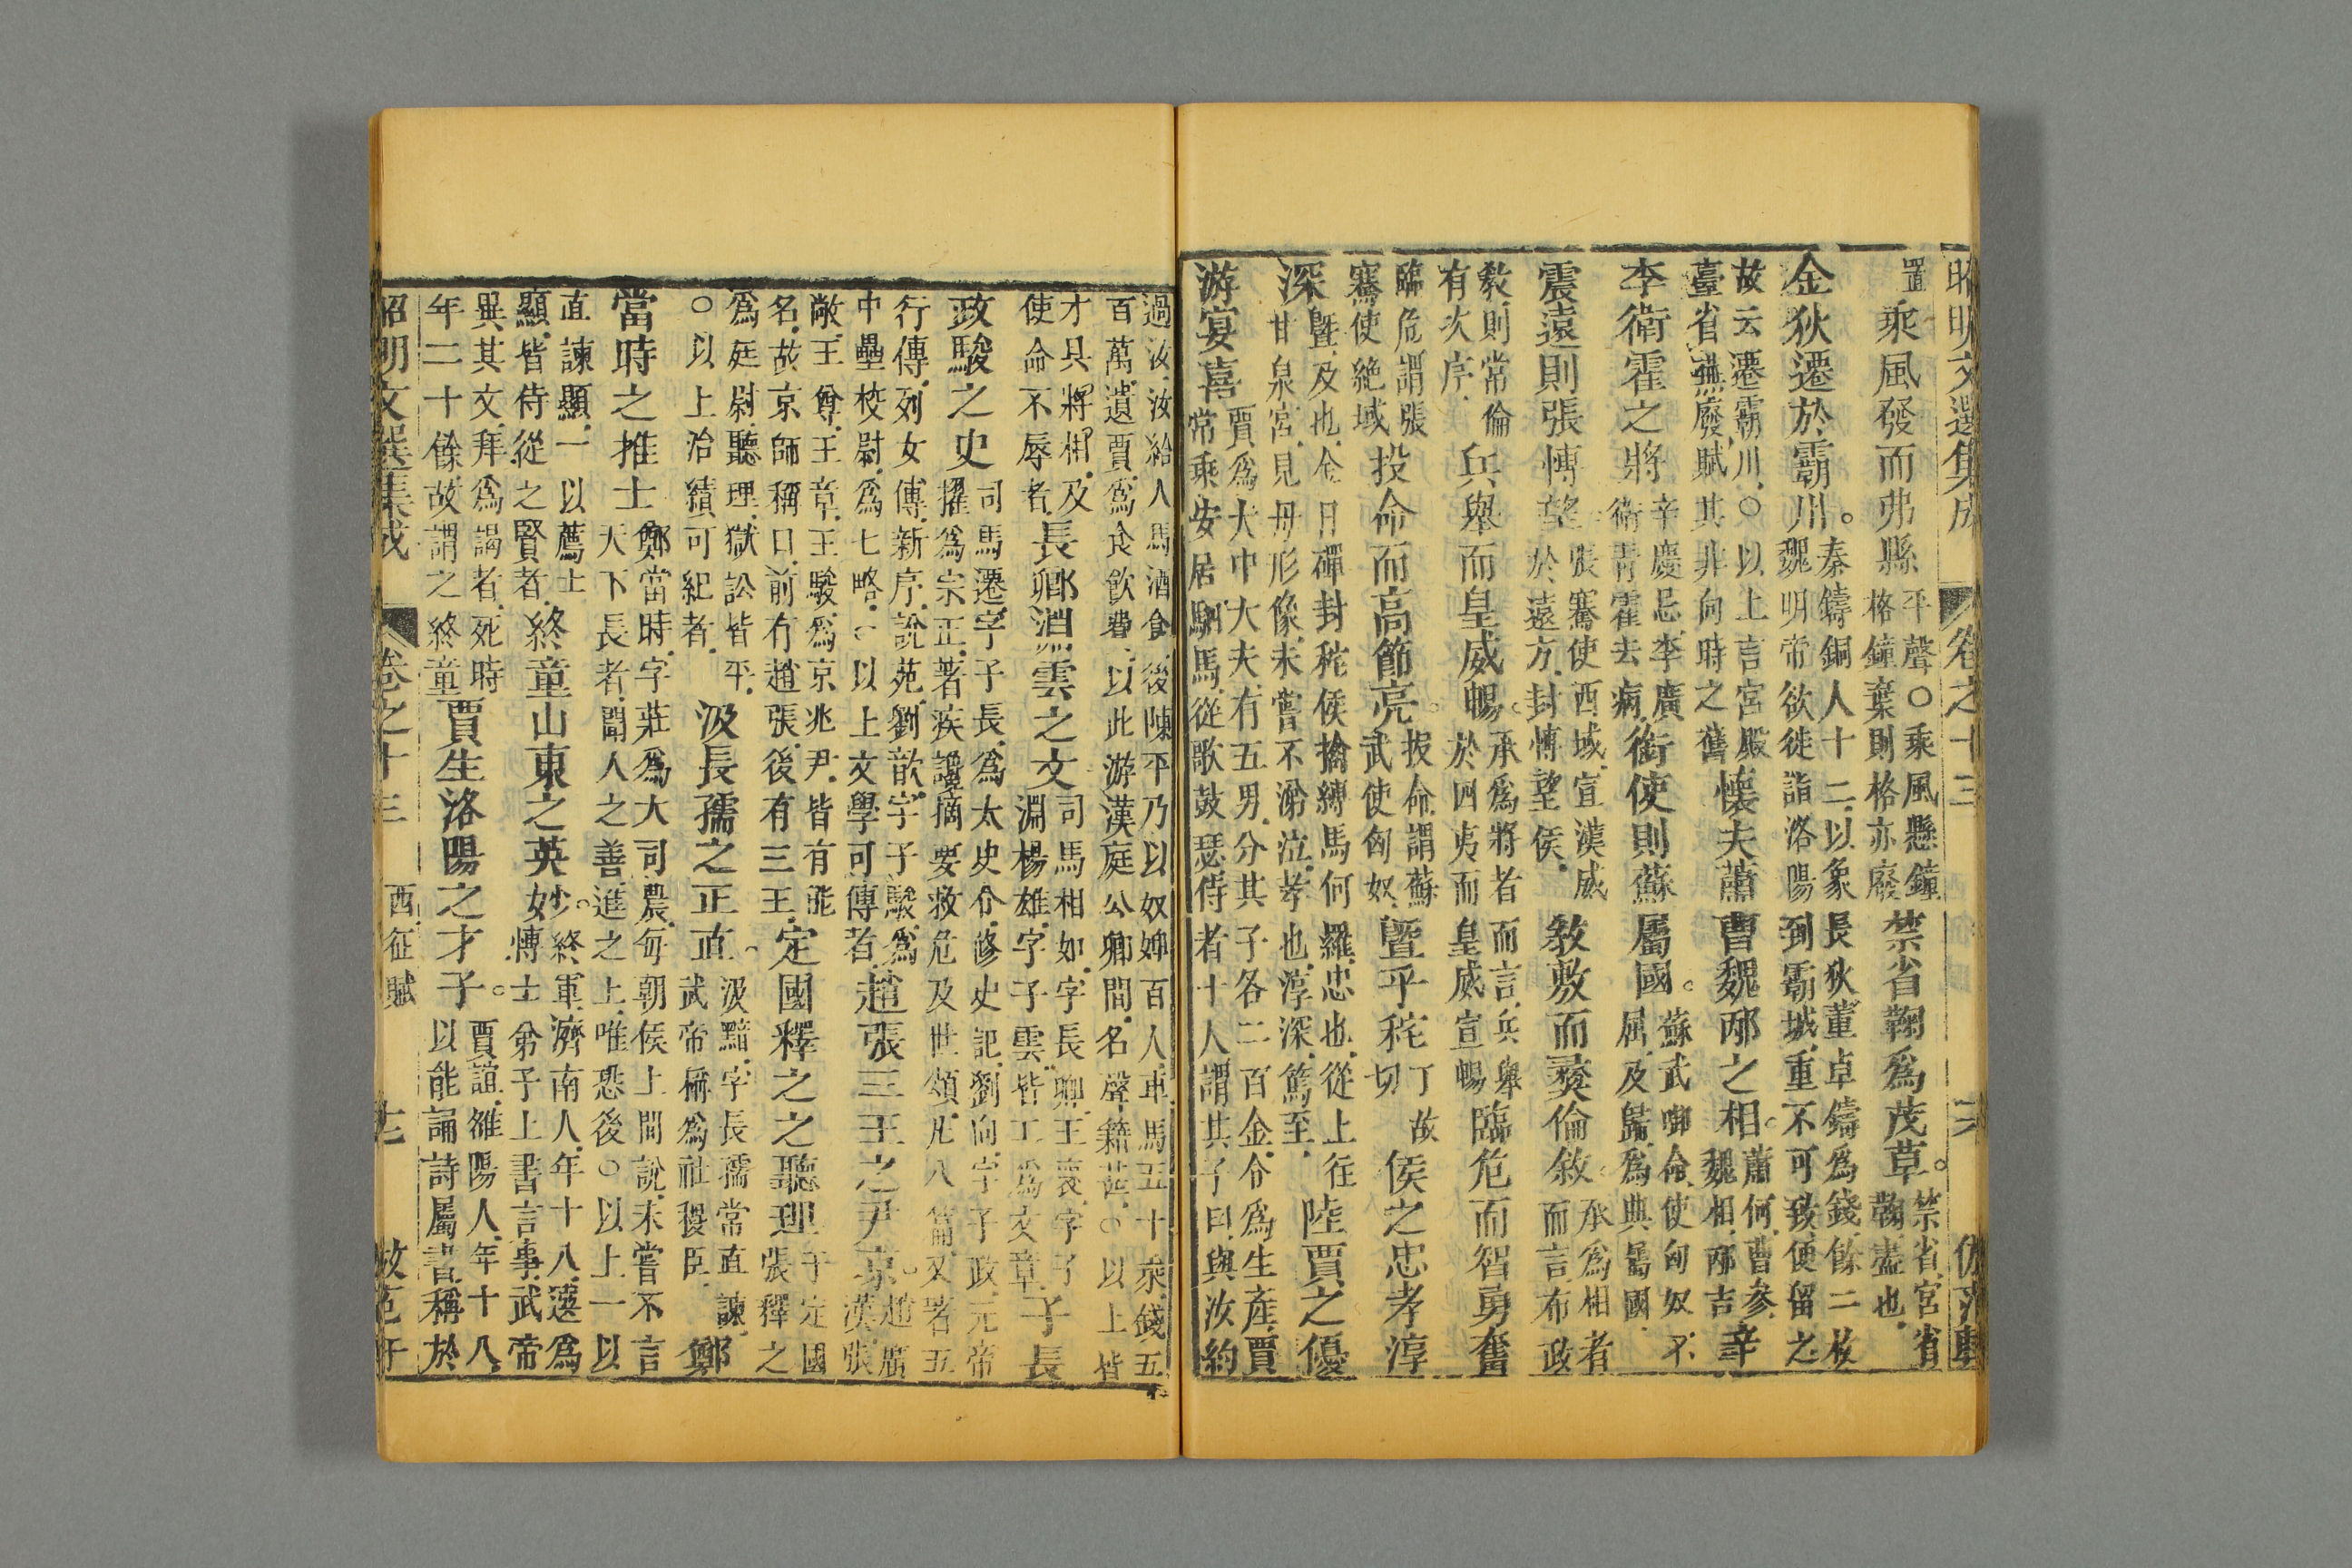 昭明文選集成 卷之十三 六
置乘風發而弗縣平聲○乘風懸鐘格鐘棄則格亦廢禁省鞠爲茂草。禁省宮省鞠盡也
金狄遷於霸川。秦鑄銅人十二以象長狄董卓鑄爲錢餘二枚魏明帝欲徙詣洛陽到霸城重不可致便留之
故云遷霸川○以上言宮殿臺省蕪廢賦其非向時之舊懷夫蕭曹魏邴之相。蕭何曹參魏相邴吉辛
李衛霍之將辛慶忌李廣衛青霍去病銜使則蘇屬國。蘇武啣命使匈奴不屈及歸爲典屬國
震遠則張博望張騫使西域宣漢威於遠方封博望侯教敷而彝倫敘。承爲相者而言布政
教則常倫有次序兵舉而皇威暢。承爲將者而言兵舉於四夷而皇威宣暢臨危而智勇奮
臨危謂張騫使絕域投命而高節亮。投命謂蘇武使匈奴暨乎秺丁故切侯之忠孝淳
深暨及也金日磾封秺侯擒縛馬何羅忠也從上往甘泉宮見母形像未嘗不涕泣孝也淳深篤至陸賈之優
游宴喜賈爲大中大夫有五男分其子各二百金令爲生產賈常乘安居駟馬從歌鼓瑟侍者十人謂其子曰與汝約
過汝汝給人馬酒食後陳平乃以奴婢百人車馬五十乘錢五百萬遺賈爲食飲費以此游漢庭公卿間名聲籍甚○以上皆
才具將相及使命不辱者長卿淵雲之文司馬相如字長卿王褒字子淵楊雄字子雲皆工爲文章子長
政駿之史司馬遷字子長爲太史令修史記劉向字子政元帝擢爲宗正著疾讒摘要救危及世頌凡八篇又著五
行傳列女傳新序說苑劉歆字子駿爲中壘校尉爲七略○以上文學可傳者趙張三王之尹京。趙廣漢張
敞王尊王章王駿爲京兆尹皆有能名故京師稱曰前有趙張後有三王定國釋之之聽理于定國張釋之
爲庭尉聽理獄訟皆平○以上治績可紀者汲長孺之正直。汲黯字長孺常直諫武帝稱爲社稷臣鄭
當時之推士鄭當時字莊爲大司農每朝候上間說未嘗不言天下長者聞人之善進之上唯恐後○以上一以
直諫顯一以薦士顯皆侍從之賢者終童山東之英妙。終軍濟南人年十八選爲博士弟子上書言事武帝
異其文拜爲謁者死時年二十餘故謂之終童賈生洛陽之才子。賈誼雒陽人年十八以能誦詩屬書稱於
昭明文選集成 卷之十三 西征賦 七